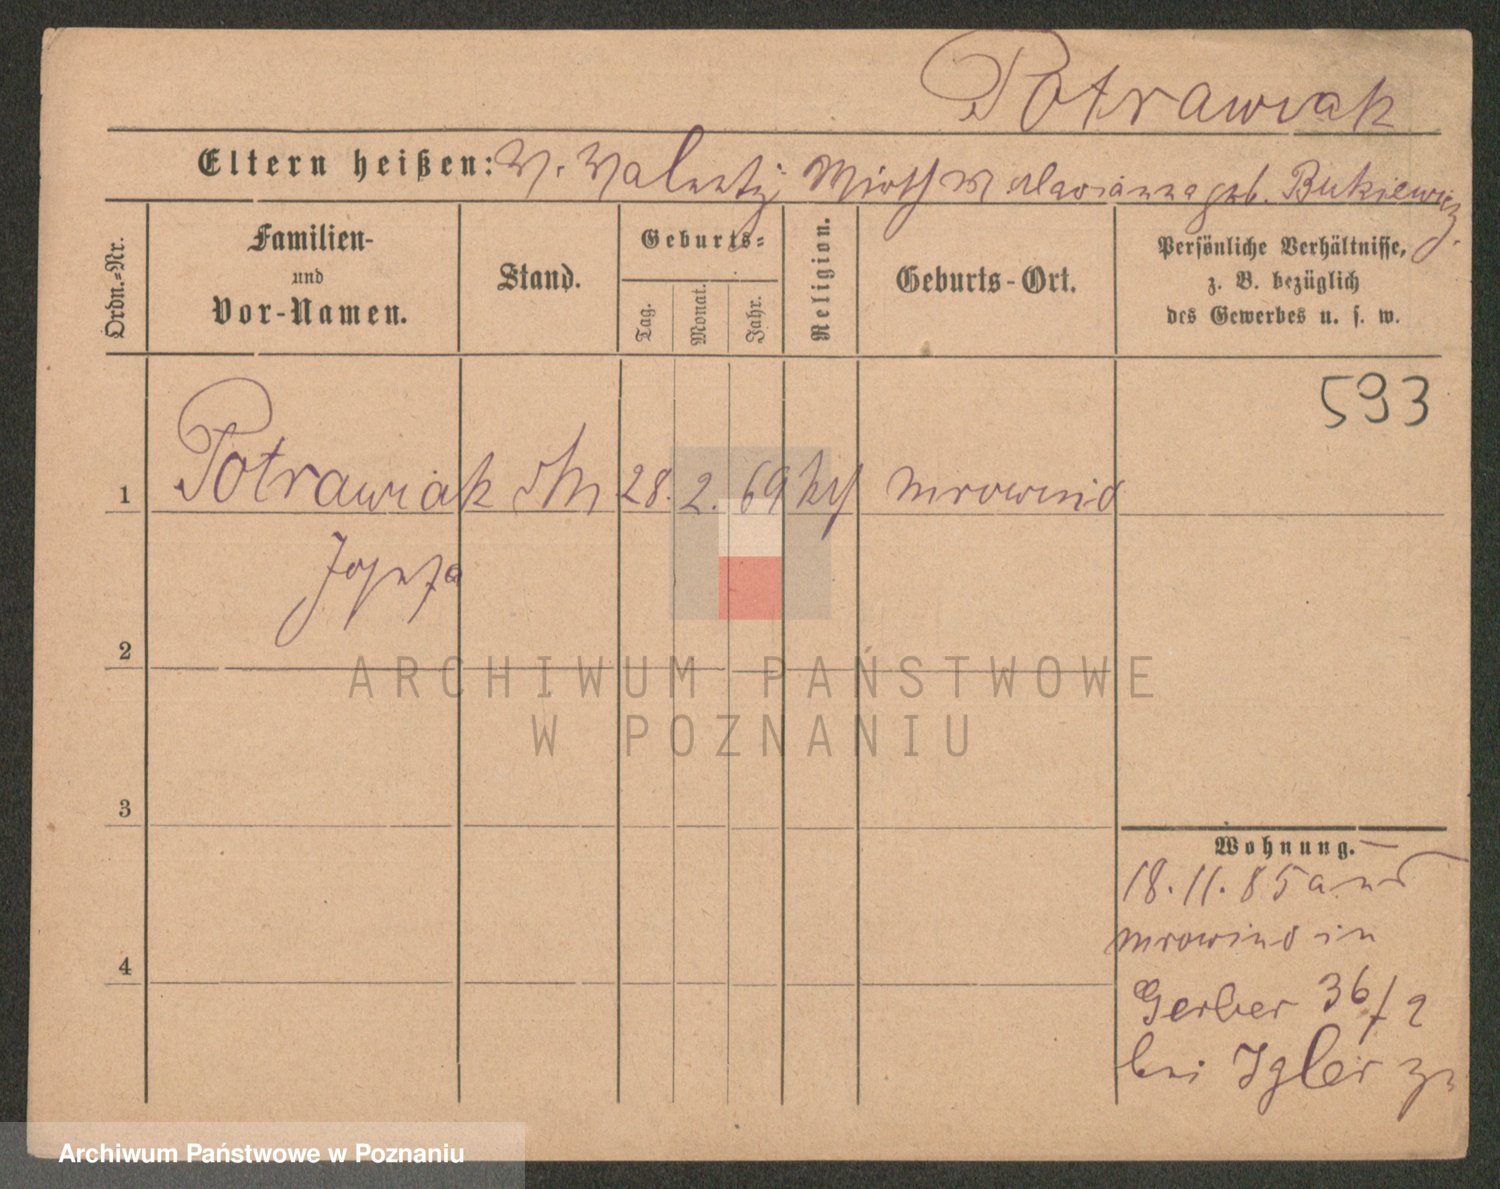 Potrawiak
Eltern heißen: V. Valenty Wirth M Marianna geb. Bukiewicz.
Ordn.-Nr.
Familien-
und
Vor-Namen.
Stand.
Geburts-
Tag.
Monat.
Jahr.
Religion.
Geburts-Ort.
Persönliche Verhältnisse,
z. B. bezüglich
des Gewerbes u. s. w.
593
1 Potrawiak 28. 2. 69 kth Mrowino
Jozefa
2
3
4
Wohnung.
18. 11. 85 aus
Mrowino in
Gerber 36/2
bei Igler zu
ARCHIWUM PAŃSTWOWE
W POZNANIU
Archiwum Państwowe w Poznaniu